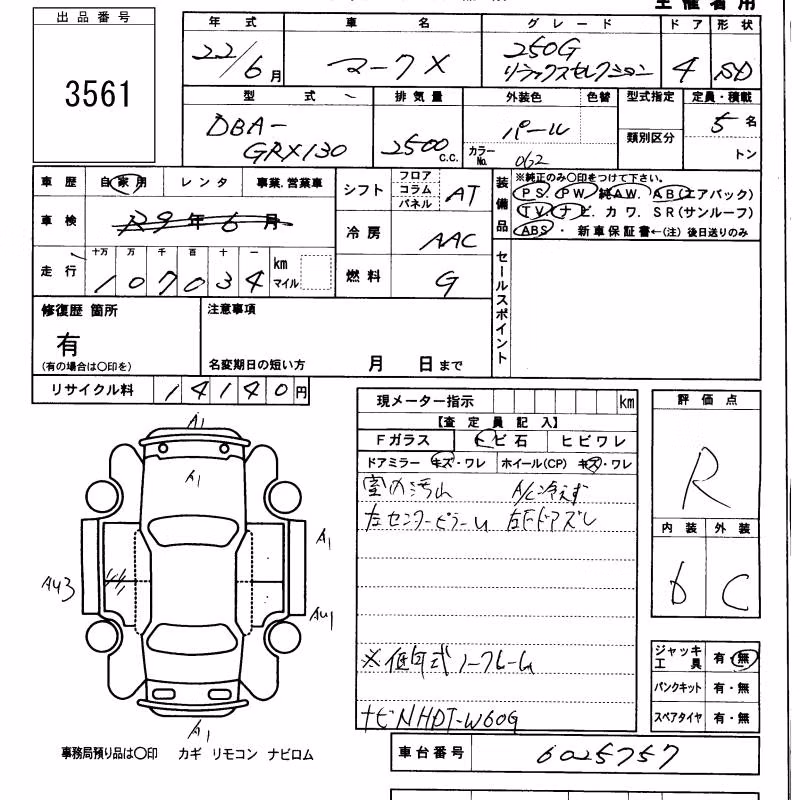 主催者用
出品番号
3561
年式 車名 グレード ドア 形状
22/6月 マークX 250G リラックスセレクション 4 SD
型式 排気量 外装色 色替 型式指定 定員・積載
DBA-GRX130 2500 c.c. パール カラーNo. 062 類別区分 5名 トン
車歴 自家用 レンタ 事業.営業車
車検 R9年6月
走行 十万 万 千 百 十 一
107034 km マイル
シフト フロア コラム パネル AT
冷房 AAC
燃料 G
装備品
※純正のみ〇印をつけて下さい。
PS. PW. 純AW. AB(エアバック)
TV. ナビ. カワ. SR(サンルーフ)
ABS・ 新車保証書←(注) 後日送りのみ
セールスポイント
修復歴 箇所
有
(有の場合は〇印を)
注意事項
名変期日の短い方 月 日まで
リサイクル料 14140円
現メーター指示 km
【査定員記入】
Fガラス トビ石 ヒビワレ
ドアミラー キズ・ワレ ホイール(CP) キズ・ワレ
室内汚れ A/C冷えず
左センターピラーU
※低年式ノークレーム
ナビNHDT-W60G
評価点
R
内装 外装
D C
ジャッキ工具 有・無
パンクキット 有・無
スペアタイヤ 有・無
A1
A1
A1
AU3
AU1
A1
事務局預り品は〇印 カギ リモコン ナビロム
車台番号 6025757